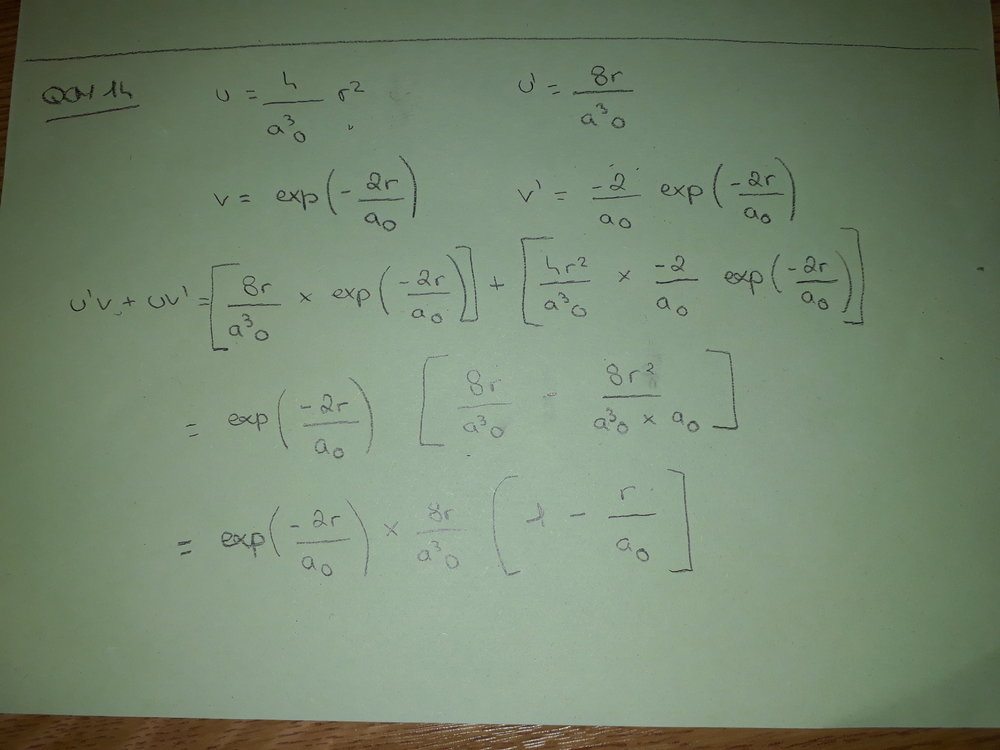 QCM 14 u = 4/a³₀ r² u' = 8r/a³₀
v = exp(- 2r/a₀) v' = -2/a₀ exp(-2r/a₀)
u'v + uv' = [8r/a³₀ × exp(-2r/a₀)] + [4r²/a³₀ × -2/a₀ exp(-2r/a₀)]
= exp(-2r/a₀) [8r/a³₀ - 8r²/a³₀ × a₀]
= exp(-2r/a₀) × 8r/a³₀ (1 - r/a₀]